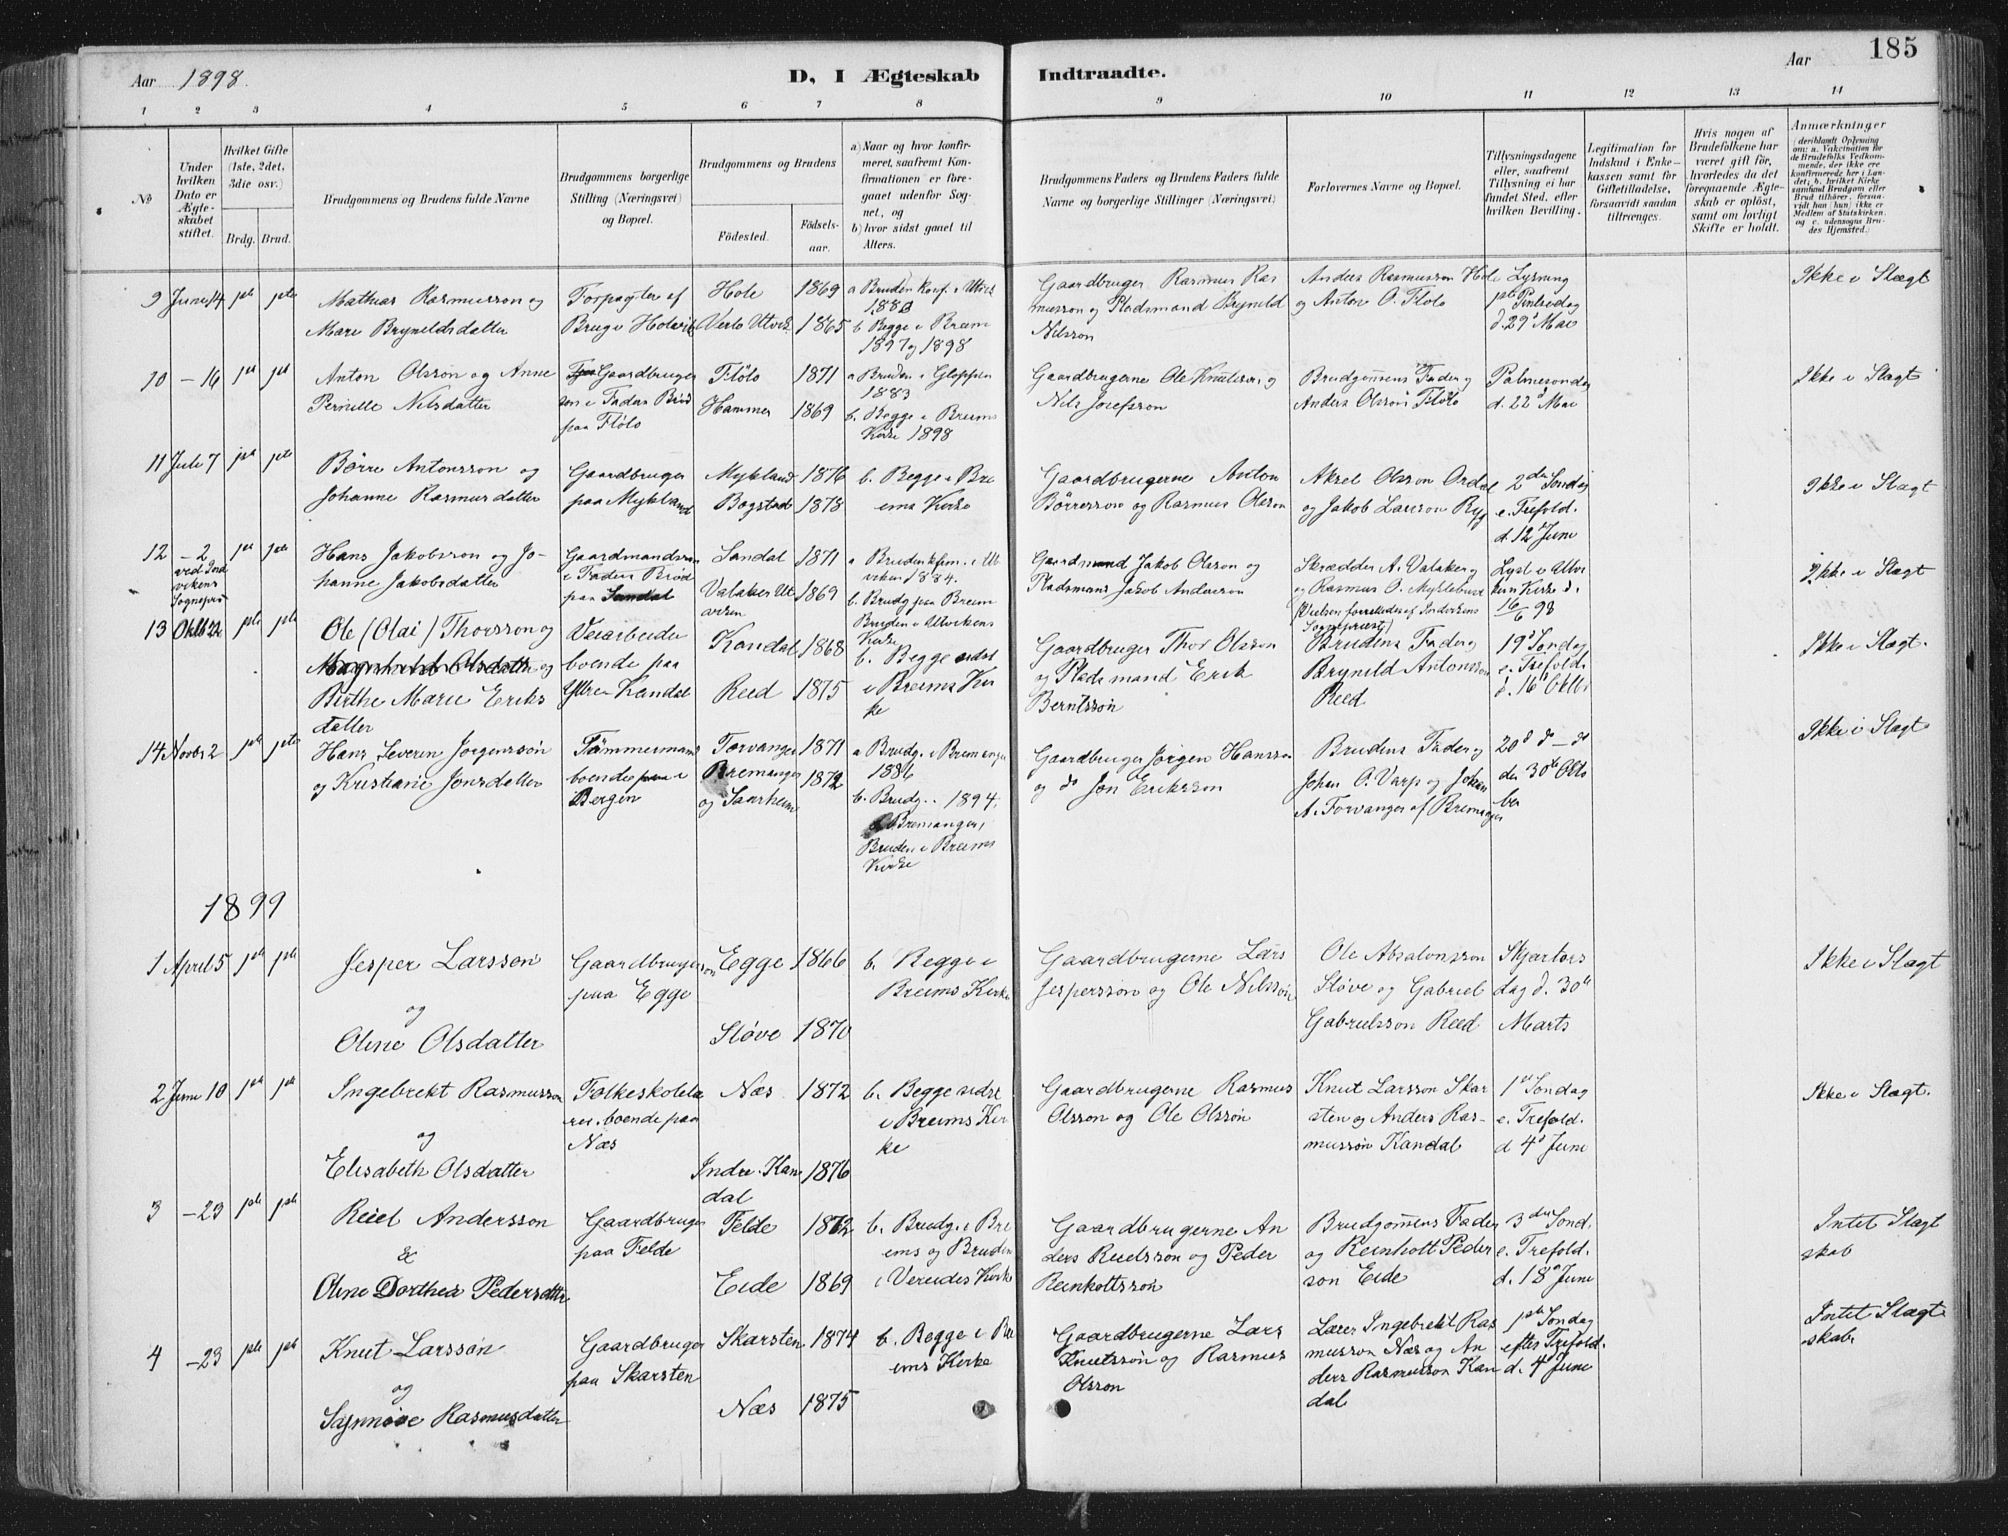 Aar 1898.
D, I Ægteskab Indtraadte.
Aar
185
1 2 3 4 5 6 7 8 9 10 11 12 13 14
No
Under hvilken Dato er Ægteskabet stiftet.
Hvilket Gifte (1ste, 2det, 3die osv.)
Brdg. Brud.
Brudgommens og Brudens fulde Navne
Brudgommens borgerlige Stilling (Næringsvei) og Bopæl.
Brudgommens og Brudens
Födested.
Födselsaar.
a) Naar og hvor konfirmeret, saafremt Konfirmationen er foregaaet udenfor Sognet, og
b) hvor sidst gaaet til Alters.
Brudgommens Faders og Brudens Faders fulde Navne og borgerlige Stillinger (Næringsvei)
Forlovernes Navne og Bopæl.
Tillysningsdagene eller, saafremt Tillysning ei har fundet Sted, efter hvilken Bevilling.
Legitimation for Indskud i Enkekassen samt for Giftetilladelse, forsaavidt saadan tiltrænges.
Hvis nogen af Brudefolkene har været gift för, hvorledes da det foregaaende Ægteskab er oplöst, samt om lovligt Skifte er holdt.
Anmærkninger (deriblandt Oplysning om: a. Vakcination for de Brudefolks Vedkommende, der ikke ere konfirmerede her i Landet, b. hvilket Kirkesamfund Brudgom eller Brud tilhörer, forsaavidt han (hun) ikke er Medlem af Statskirken, og c. udensogns Brudes Hjemsted.)
9 June 14 1ste 1ste
Mathias Rasmusson og
Mari Brynildsdatter
Forpagter af
Brug i Holevik
Hole 1869
Verlo Utvik 1865
a Bruden Konf. i Utvik
1880
b. Begge i Breim
1897 og 1898
Gaardbruger Rasmus Ras
musson og Pladsmand Brynild
Nilsson
Anders Rasmusson Hole
og Anton O. Flölo
Lysning
1ste Pintsedag
d. 29de Mai
Ikke i Slægt
10 - 16 1ste 1ste
Anton Olsson og Anne
Pernille Nilsdatter
Gaardbruger
søn i Faders Bröd
paa Flölo
Flölo 1871
Hammer 1869
a Bruden i Gloppen
1883
b. Begge i Breims
Kirke 1898
Gaardbrugerne Ole Knutson og
Nils Josefsson
Brudgomens Fader og
Anders Olsson Flölo
Palmesondag
d. 22de Mai
Ikke i Slægt
11 Juli 7 1ste 1ste
Börre Antonsson og
Johanne Rasmusdatter
Gaardbruger
paa Mykland
Mykland 1876
Bogstad 1878
b. Begge i Bre
ims Kirke
Gaardbrugerne Anton
Börresson og Rasmus Olsson
Aksel Olsson Ordal
og Jakob Larsson Ryg
2den Sondag
e. Trefold.
d. 12te Juni
Ikke i Slægt
12 - 2
ved Ind
vikens
Sognepræst
1ste 1ste
Hans Jakobsson og Jo-
hanne Jakobsdatter
Gaardmandssøn
i Faders Bröd
paa Sandal
Sandal 1871
Valaker Ut
viken 1869
a Bruden kfm. i Ut
viken 1884.
b. Brudg. paa Breim
Bruden i Utvikens
Kirke
Gaardmand Jakob Olsson og
Pladsmans Jakob Anderson
Skrædder A. Valaker og
og Rasmus O. Myklebust
(Vielsen forrettedes af Indvikens
Sognepræst)
Lyst i Utvi
kens Kirke d.
16/6 98
Ikke i Slægt
13 Oktb 22 1ste 1ste
Ole (Olai) Thorsson og
Birthe Marie Eriks
datter
Veiarbeider
boende paa
Yttre Kandal
Kandal 1868
Reed 1875
b. Begge sidst
i Breims Kir
ke
Gaardbruger Thor Olsson
og Pladsmand Erik
Berntsson
Brudens Fader og
Brynild Antonsson
Reed
19de Sondag
e. Trefold.
d. 16de Oktbr
Ikke i Slægt.
14 Novbr 2 1ste 1ste
Hans Severin Jorgensson
og Kristiane Jonsdatter
Tömmermand
boende i
Bergen
Torvanger 1871
Bremanger
og Sansheim 1872
a Brudg. i Bremanger
1886
b. Brudg. 1894
Bremanger,
Bruden i Breims
Kirke
Gaardbruger Jörgen Hansson
og do Jon Eriksson
Brudens Fader og
Johan O. Varp og Johan
A. Torvanger af Bremanger
20de do - do
den 30te Okto
ber
Ikke i Slægt
1899
1 April 5 1ste 1ste
Jesper Larsson
og
Oline Olsdatter
Gaardbrugersön
paa Egge
Egge 1866
Slöve 1870
b. Begge i
Breims Kirke
Gaardbrugerne Lars
Jespersson og Ole Nilsson
Ole Absalonsson
Slöve og Gabriel
Gabrielsson Reed
Skjærtors
dag d. 30te
Marts
Ikke i Slægt
2 Juni 10 1ste 1ste
Ingebrekt Rasmusson
og
Elisabeth Olsdatter
Folkeskolelæ
rer, boende paa
Næs
Næs 1872
Indre Kan
dal 1876
b. Begge sidst
i Breims Kir
ke
Gaardbrugerne Rasmus
Olsson og Ole Olsson
Knut Larsson Skar
sten og Anders Ras-
musson Kandal
1ste Sondag
e. Trefold.
d 4de Juni
Ikke i Slægt.
3 - 23 1ste 1ste
Reiel Andersson
&
Oline Dorthea Pedersdatter
Gaardbruger
paa Felde
Felde 1872
Eide 1869
b. Brudg. i Bre
ims og Bruden
i Vereides Kirke
Gaardbrugerne An
ders Reielsson og Peder
Reinholtsson
Brudgomens Fader
og Reinholt Peder
son Eide
3die Sond.
e. Trefold.
d. 18de Juni
Intet Slægt
skab
4 - 23 1ste 1ste
Knut Larsson
og
Synnöve Rasmusdatter
Gaardbruger
paa Skarsten
Skarsten 1874
Næs 1875
b. Begge i Bre
ims Kirke
Gaardbrugerne Lars
Knutsson og Rasmus
Olsson
Lærer Ingebrekt Ras
musson Næs og An
ders Rasmusson Kan
dal
1ste Sondag
efter Trefold.
d. 4de June
Intet Slægt
skab